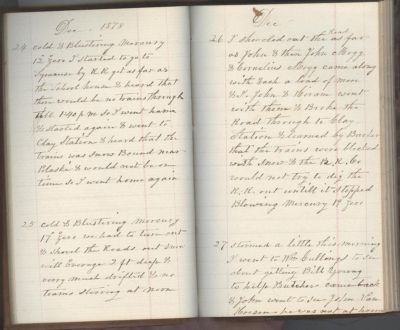 Dec 1878
24 cold & Blustering Mercury
12 Zero I started to go to
Syracuse by R.R. got as far as
the School house & heard that
there would be no trains through
till 1.40 p m So I went home
& started again & went to
Clay Station & heard that the
trains was Snow Bound near
Pulaski & would not be on
time So I went home again
25 cold & Blustering Mercury
17 Zero we had to turn out
& Shovel the Roads out Snow
will Average 2 ft deep &
very much drifted & no
trains stirring at noon
Dec
26 I shoveled out the Road as far
as John & then John Mogg
& Cornelius Mogg came along
with each a load of men
& I John & Hiram went
with them & Broke the
Road through to Clay
Station & learned by Butcher
that the trains were blocked
with Snow & the R.R. Co
would not try to dig the
R.R. out untill it stopped
Blowing Mercury 18 Zero
27 stormed a little this morning
I went to Wm to See
about getting Bill Young
to help Butcher came back
& John went to See John Van
he was not at home